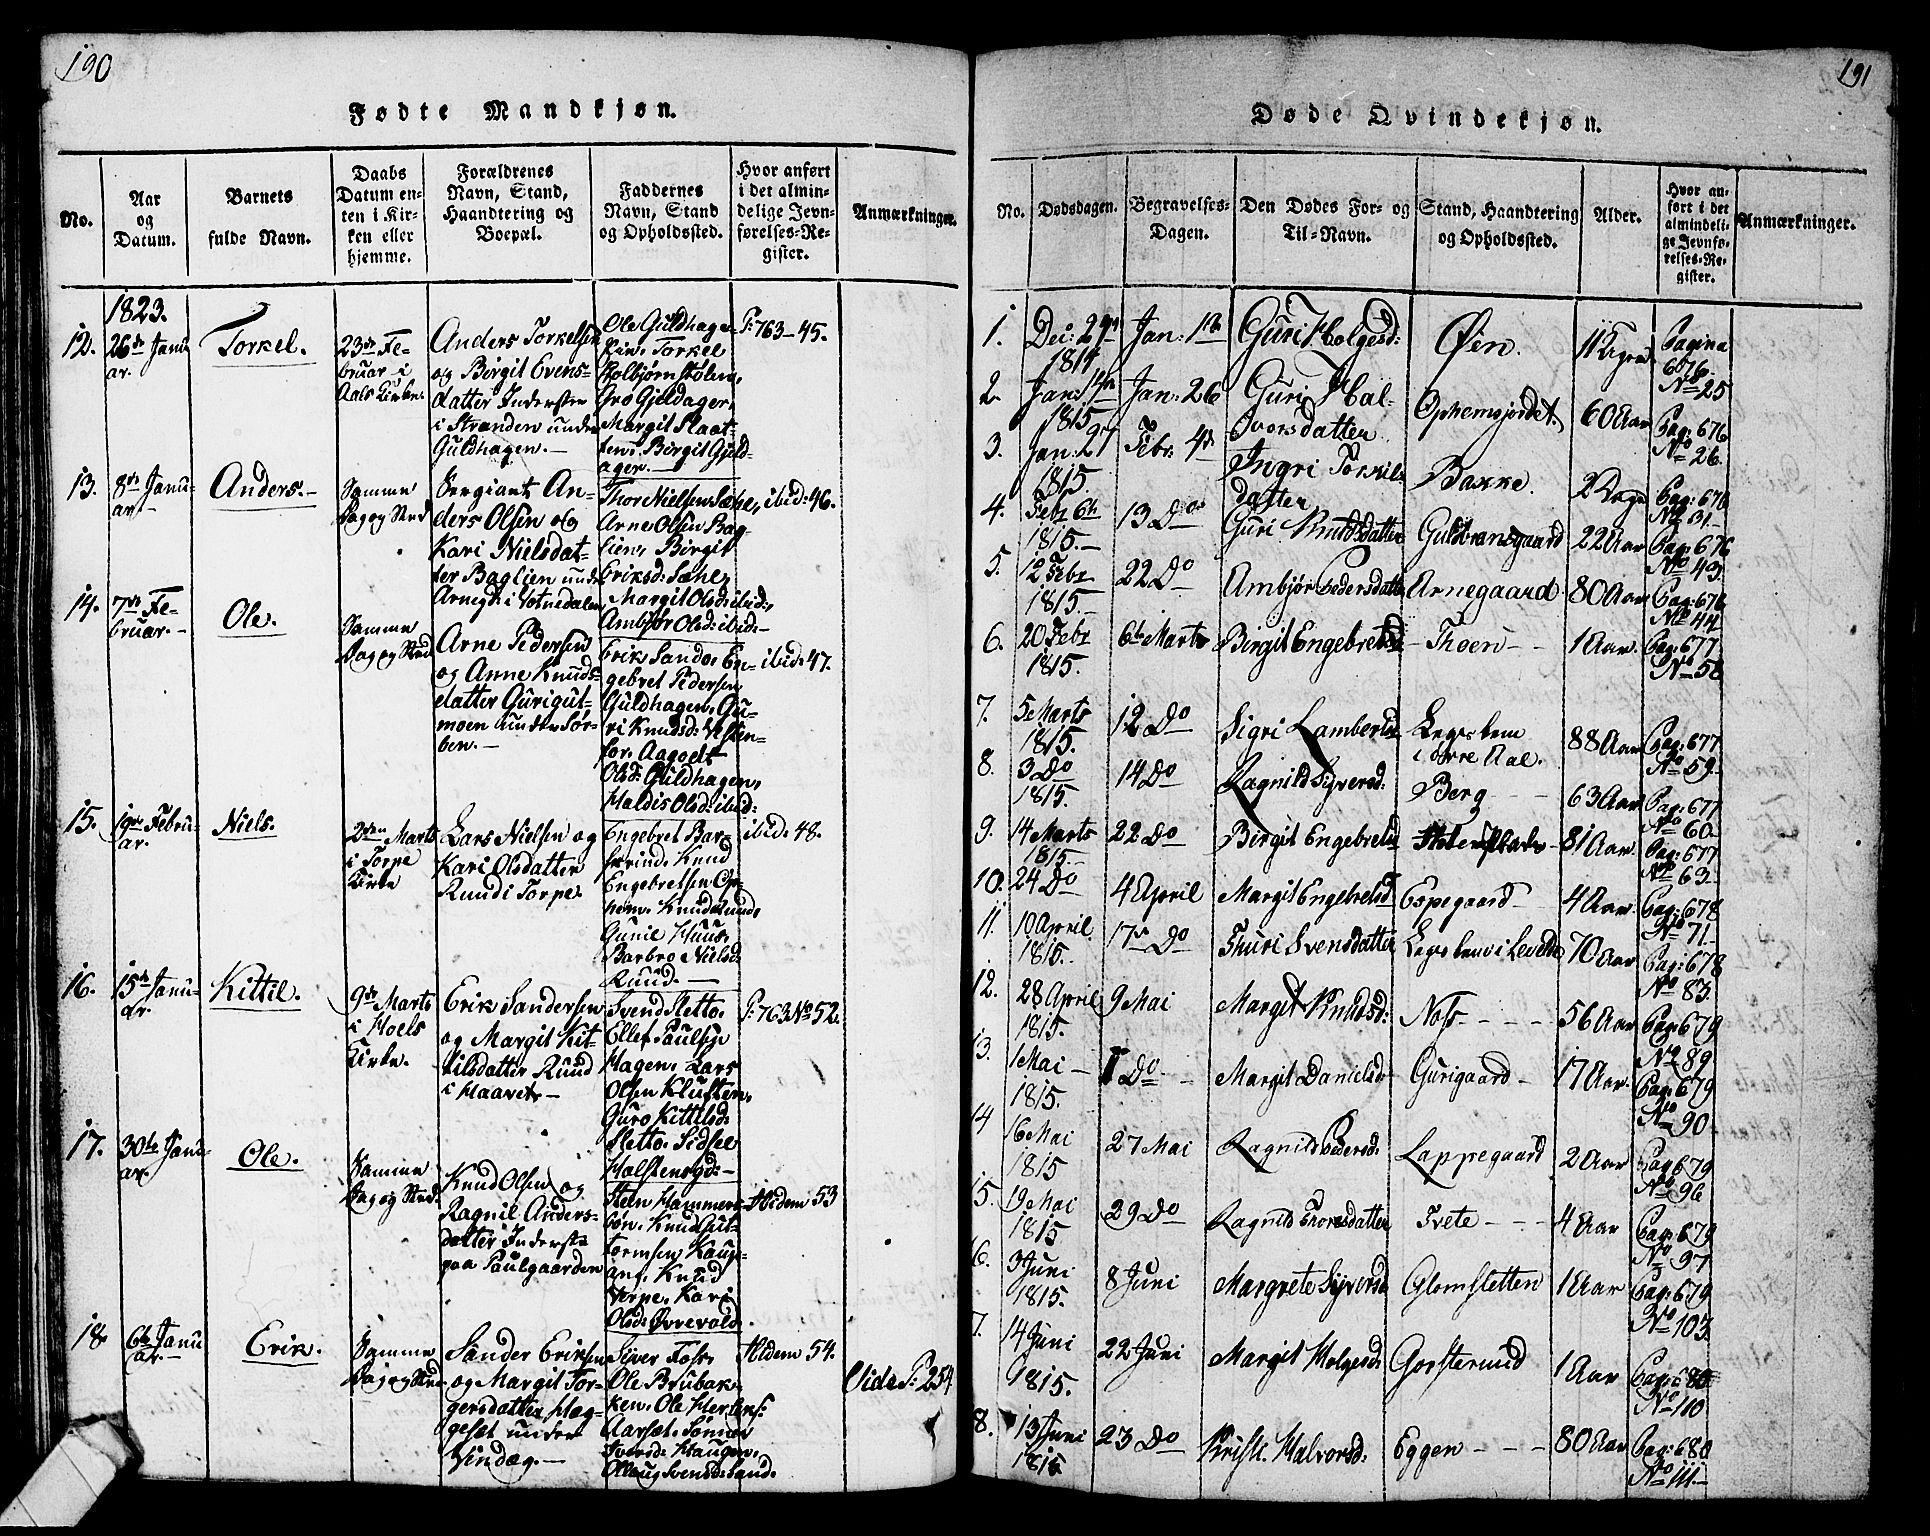 190
Fødte Mandkjøn.
No.
Aar
og
Datum.
Barnets
fulde Navn.
Daabs
Datum en-
ten i Kir-
ken eller
hjemme.
Forældrenes
Navn, Stand,
Haandtering og
Boepæl.
Faddernes
Navn, Stand
og Opholdssted.
Hvor anført
i det almin-
delige Jevn-
førelses-Re-
gister.
Anmærkninger.
1823.
12.
26de Janu-
ar.
Torkel.
23de Fe-
bruar i
Aals Kirke.
Anders Torkelsen
og Birgit Evens-
datter Inderster
i Stranden under
Guldhagen.
Ole Guldhagen
Torkel
Kolbjørnstølen,
Gro Gjeldager,
Margit Slaat-
ten, Birgit Gjeld-
ager.
P: 763-45.
13.
8de Janu-
ar.
Anders.
Samme
Dag og Sted
Sergiant An-
ders Olsen og
Kari Nielsdat-
ter Baglien under
Arnegr: i Votnedalen
Thor Nielsen Sæhe,
Arne Olsen Bag-
lien, Birgit
Eriksd: Sæhe,
Margit Olsd: ibid:,
Ambjør Olsd: ibid:
ibid: 46.
14.
7de Fe-
bruar.
Ole.
Samme
Dag og Sted
Arne Pedersen
og Anne Knuds-
datter Gurigut-
moen under Sør-
ben.
Erik Sando, En-
gebret Pedersen
Guldhagen, Gu-
ri Knudsd: Vesten-
for, Aagodt
Olsd: Guldhagen,
Haldis Olsd: ibid:
ibid: 47.
15.
19de Febru-
ar.
Niels.
2den Marts
i Torpe
Kirke
Lars Nielsen og
Kari Olsdatter
Ruud i Torpe.
Engebret Bar-
skrind, Knud
Engebretsen Op-
hem, Knud Lund,
Gunil Huus,
Barbro Nielsd:
Ruud.
ibid: 48.
16.
15de Janu-
ar.
Kittil.
9de Marts
i Hoels
Kirke.
Erik Sandersen
og Margit Kit-
tilsdatter Ruud
i Haavet
Svend Sletto,
Ellef Paulsen
Hagen, Lars
Olsen Klusten,
Guro Kittilsd:
Sletto, Sidsel
Halstensgd:
P: 763 No 52.
17.
30te Janu-
ar.
Ole.
Samme
Dag og Sted.
Knud Olsen og
Ragnil Anders-
datter Inderste
paa Paulgaarden
Steen Hammers-
bøn, Knud Gut-
tormsen Kaup-
ang, Knud
Torpe, Kari
Olsd: Øvrevold.
Ibidem 53
18.
6te Janu-
ar.
Erik.
Samme
Dag og Sted
Sander Eriksen
og Margit Tor-
gersdatter Hag-
geset under
Vindæg.
Siver Foss,
Ole Brubak-
ken, Ole Herten
Aarset, Sønnev
Iversd: Haugen,
Ollaug Svensd: Sand.
Ibidem 54.
Vide P: 254
191
Døde Qvindekjøn.
No.
Dødsdagen.
Begravelses-
Dagen.
Den Dødes For- og
Til-Navn.
Stand, Haandtering
og Opholdssted.
Alder.
Hvor an-
ført i det
almindeli-
ge Jevnfø-
relses-Re-
gister.
Anmærkninger.
1.
Dec: 27de
1814
Jan: 1te
Guri Holgesd:
Øen.
11 Dage
Pagina
676.
No 25
2.
Jan: 14de
1815
Jan: 26
Guri Hal-
vorsdatter
Ophemsjordet
60 Aar
Pag: 676
No 26.
3.
Jan: 27
1815
Febr: 4de
Ingri Torkils-
datter
Bakke.
2 Dage
Pag: 676
No 31.
4.
Febr 6te
1815.
13 Do
Guri Knudsdatter
Guldbransgaard
22 Aar
Pag: 676
No 43.
5.
12 Febr
1815.
22 Do
Ambjør Pedersdatter
Arnegaard
80 Aar
Pag: 676
No 44
6.
20 Febr
1815.
6te Marts
Birgit Engebretsd
Thoen
1 Aar.
Pag: 677
No 58
7.
5 Marts
1815.
12 Do
Sigri Lambertsd
Legdslem
i Øvre Aal.
88 Aar
Pag: 677
No 59.
8.
3 Do
1815.
14 Do
Ragnild Syversd:
Berg
63 Aar
Pag: 677
No 60.
9.
14 Marts
1815.
22 Do
Birgit Engebretsd
81 Aar.
Pag: 677
No 63.
10.
24 Do
4 April
Margit Engebretsd
Espegaard
4 Aar.
Pag: 678
No 71.
11.
10 April
1815.
17de Do
Thuri Svensdatter
Legdslem i Leveld
70 Aar
Pag: 678
No 83.
12.
28 April
1815.
9 Mai
Margit Knudsd:
Nos
56 Aar
Pag: 679
No 89
13.
1 Mai
1815.
Do
Margit Danielsd:
Gurigaard
17 Aar.
Pag: 679
No 90.
14
16 Mai
1815
27 Mai
Ragnild Pedersd:
Lappegaard
2 Aar
Pag: 679
No 96
15.
19 Mai
1815
29 Do
Ragnild Thorsdatter
Tvete
4 Aar
Pag: 679
No 97
16.
3 Juni
1815.
8 Juni
Margrete Syversd
Glomstetten
1 Aar
Pag: 679
No 103.
7.
14 Juni
1815.
22 Juni
Margit Holgesd:
Gorsterund
1 Aar
Pag: 680
No 110
8.
13 Juni
1815
23 Do
Kristi Halvorsd:
Eggen
80 Aar
Pag: 680
No 111.